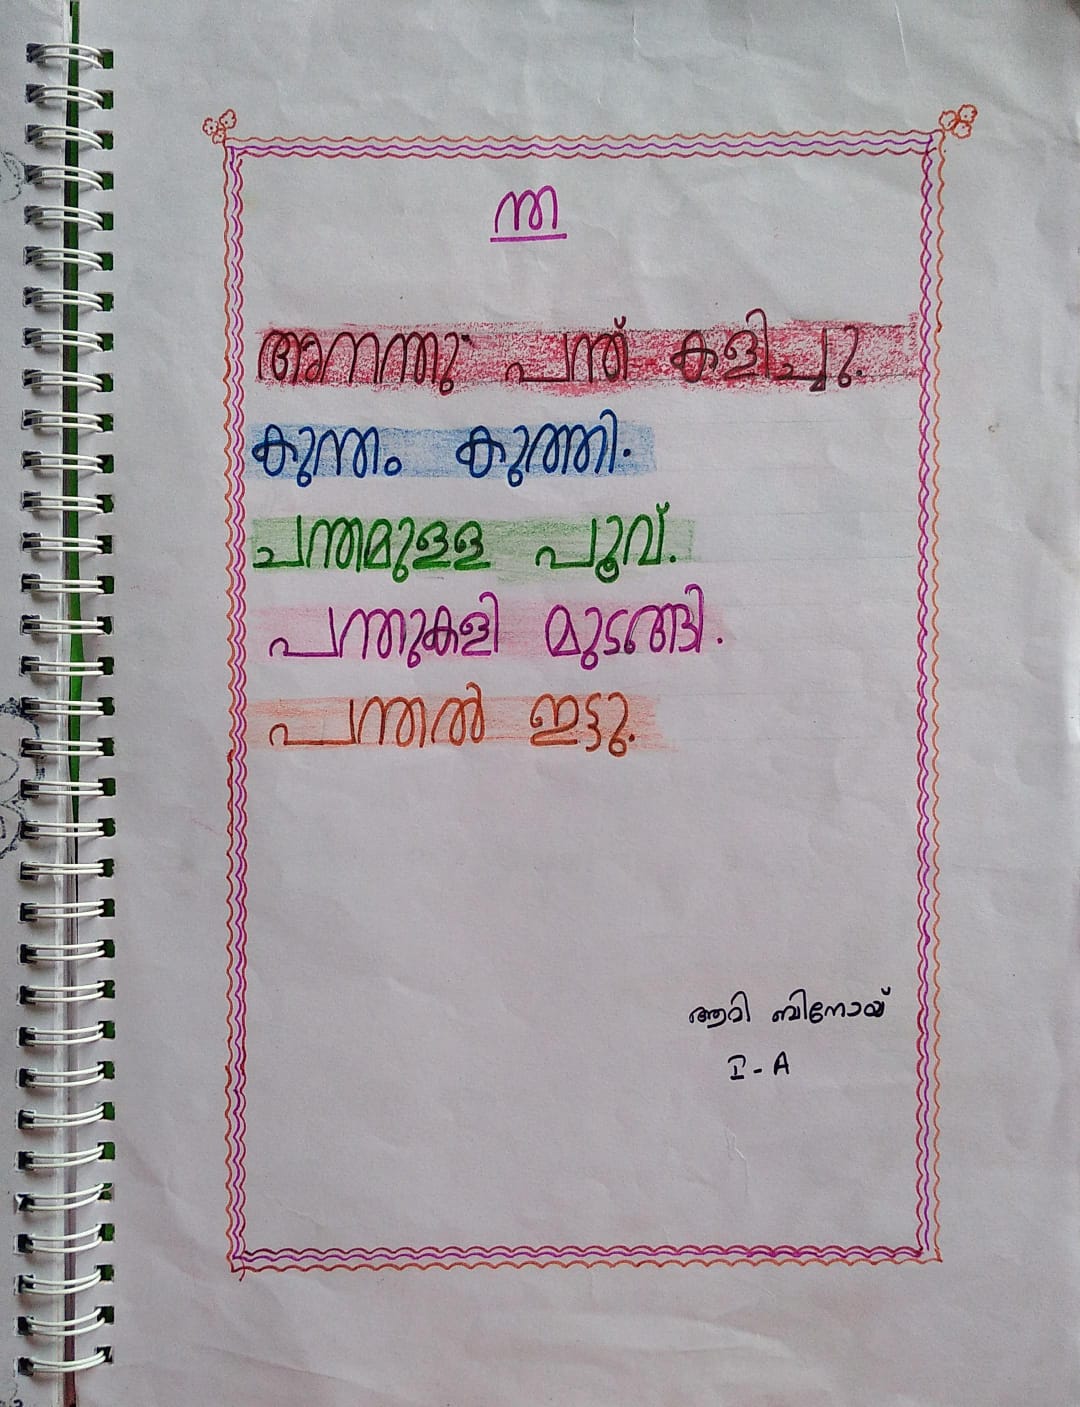 ന്ത
അനന്തു പന്ത് കളിച്ചു.
കുന്തം കുത്തി.
ചന്തമുള്ള പൂവ്.
പന്തുകളി മുടങ്ങി.
പന്തൽ ഇട്ടു.
ആദി ബിനോയ്
I - A